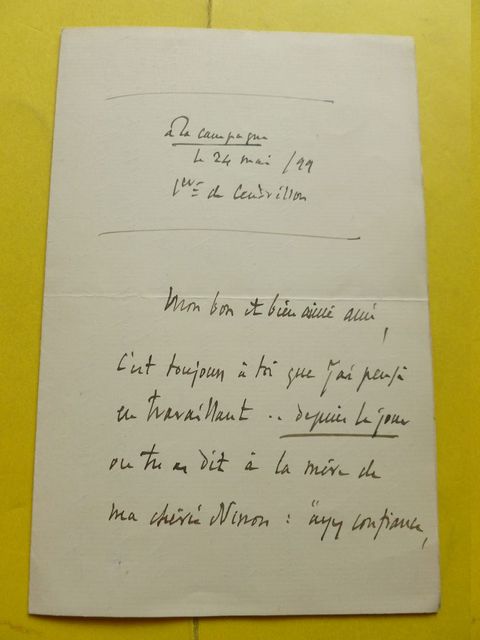 à la campagne
le 24 mai /99
1ère de Cendrillon
Mon bon et bien aimé ami,
c'est toujours à toi que j'ai pensé
en travaillant .. depuis le jour
où tu as dit à la mère de
ma chérie Ninon : "ayez confiance,